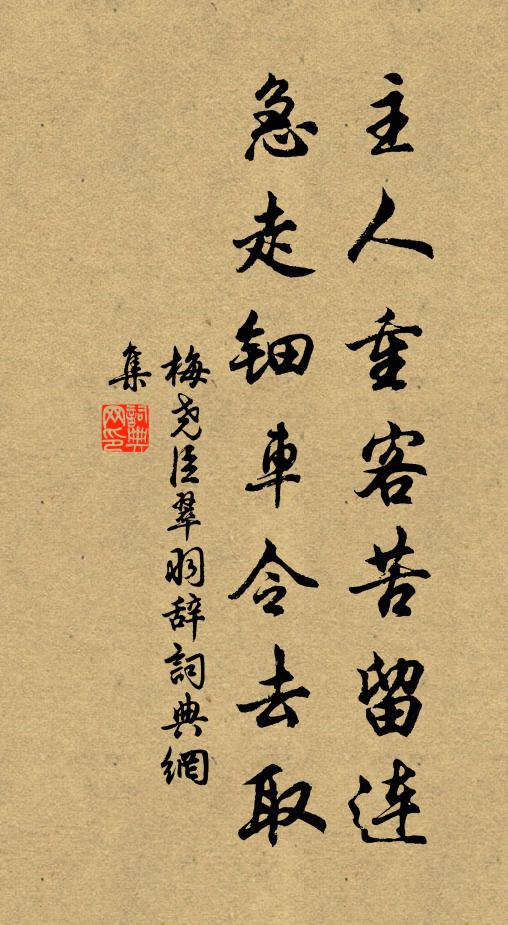 主人重客苦留连
急走钿車令去取
梅尧臣翠羽辞詞典網
集
詞典
网印